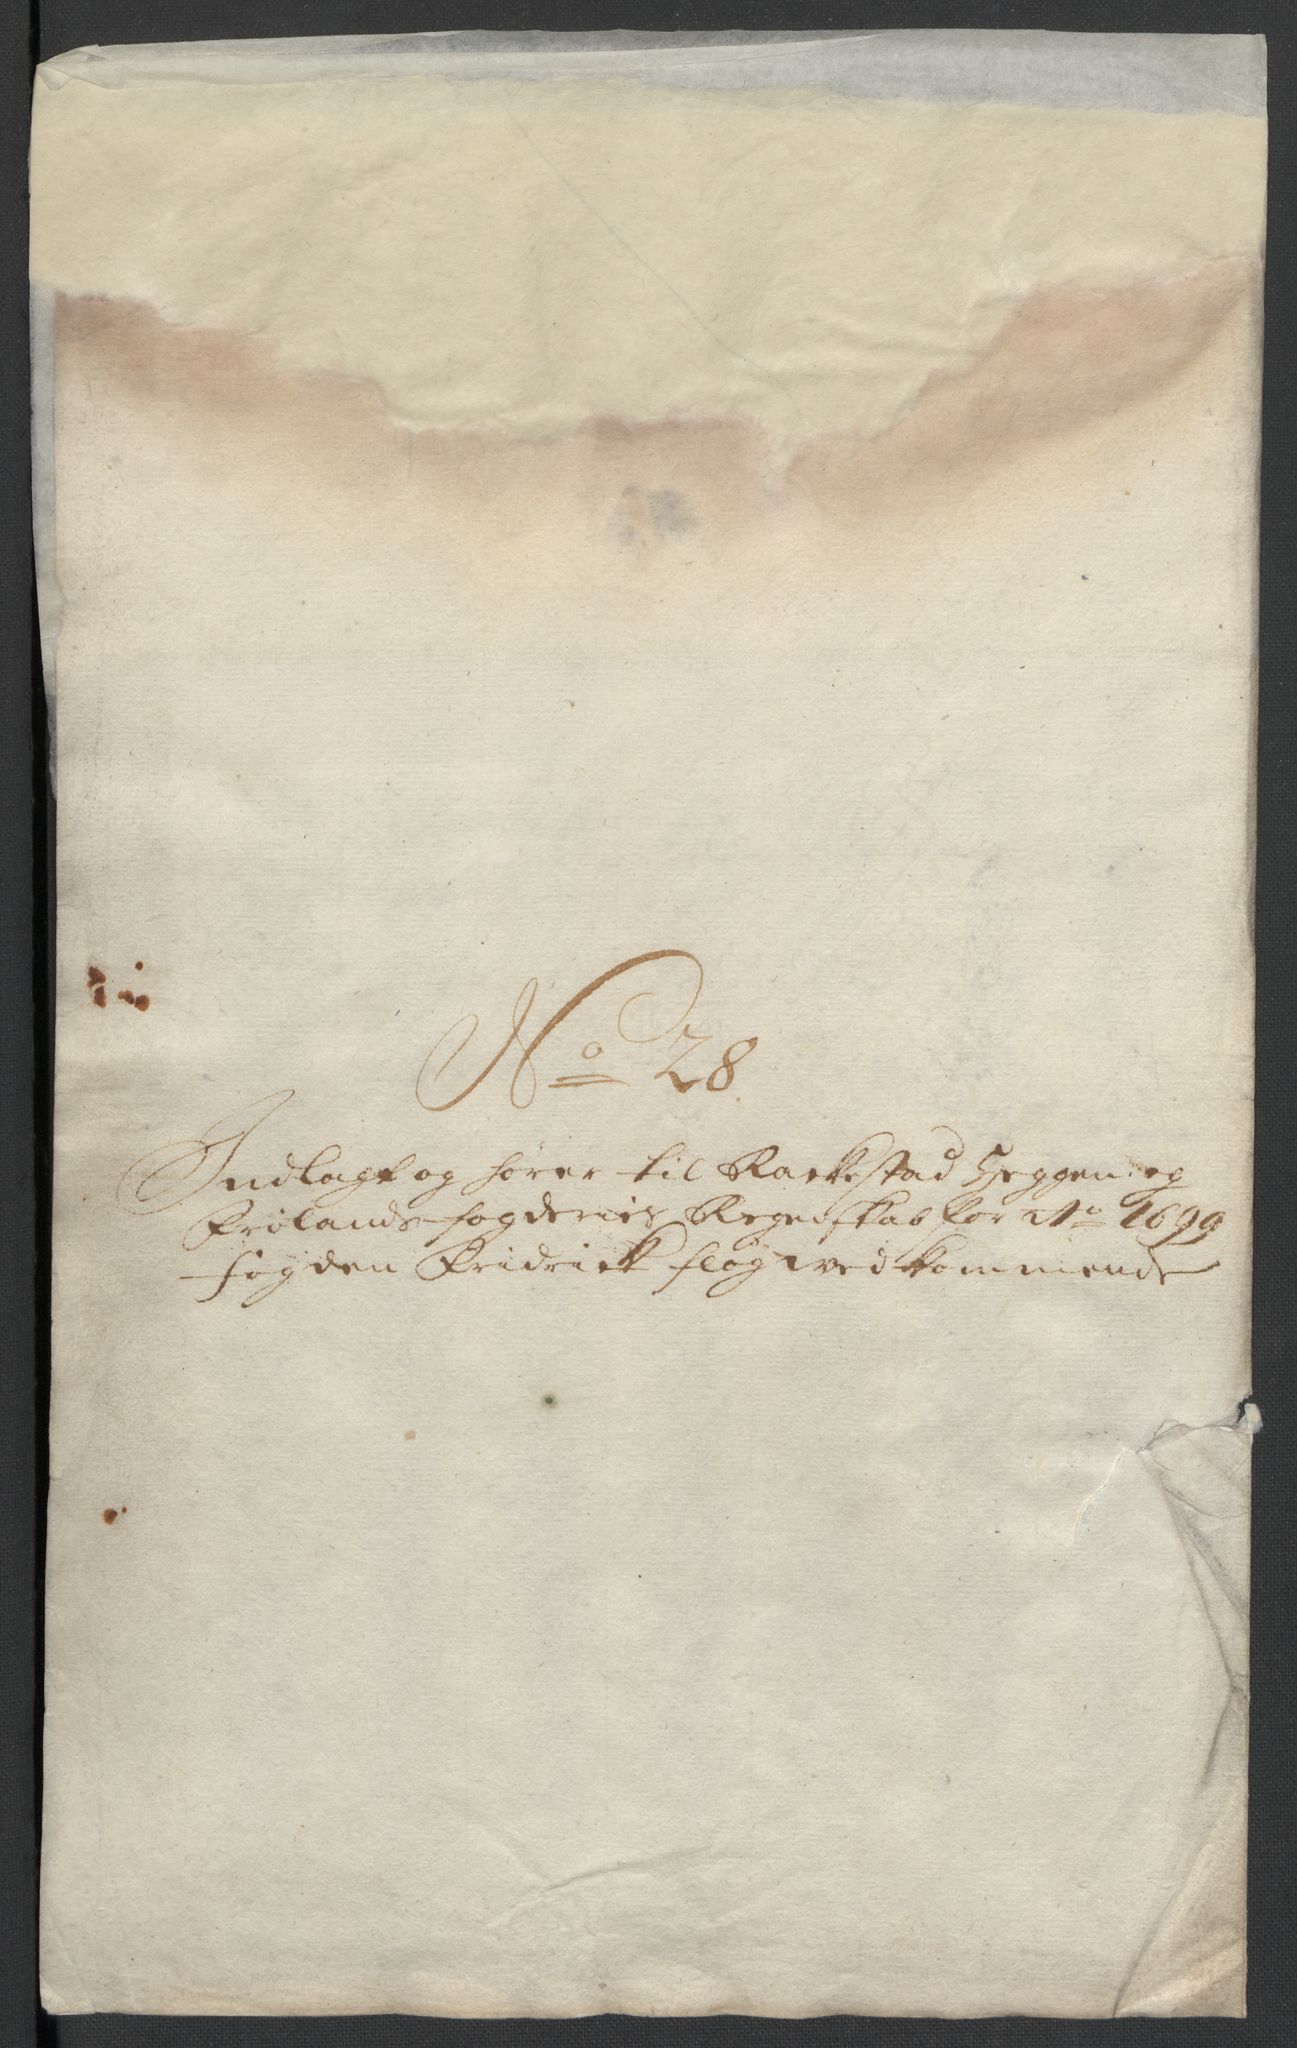 No 28.
Indlagt og hører til Rackestad Heggen og
Frølands fogderies Regenskab for Ao 1699
fogden Fridrick fløg wedkommende